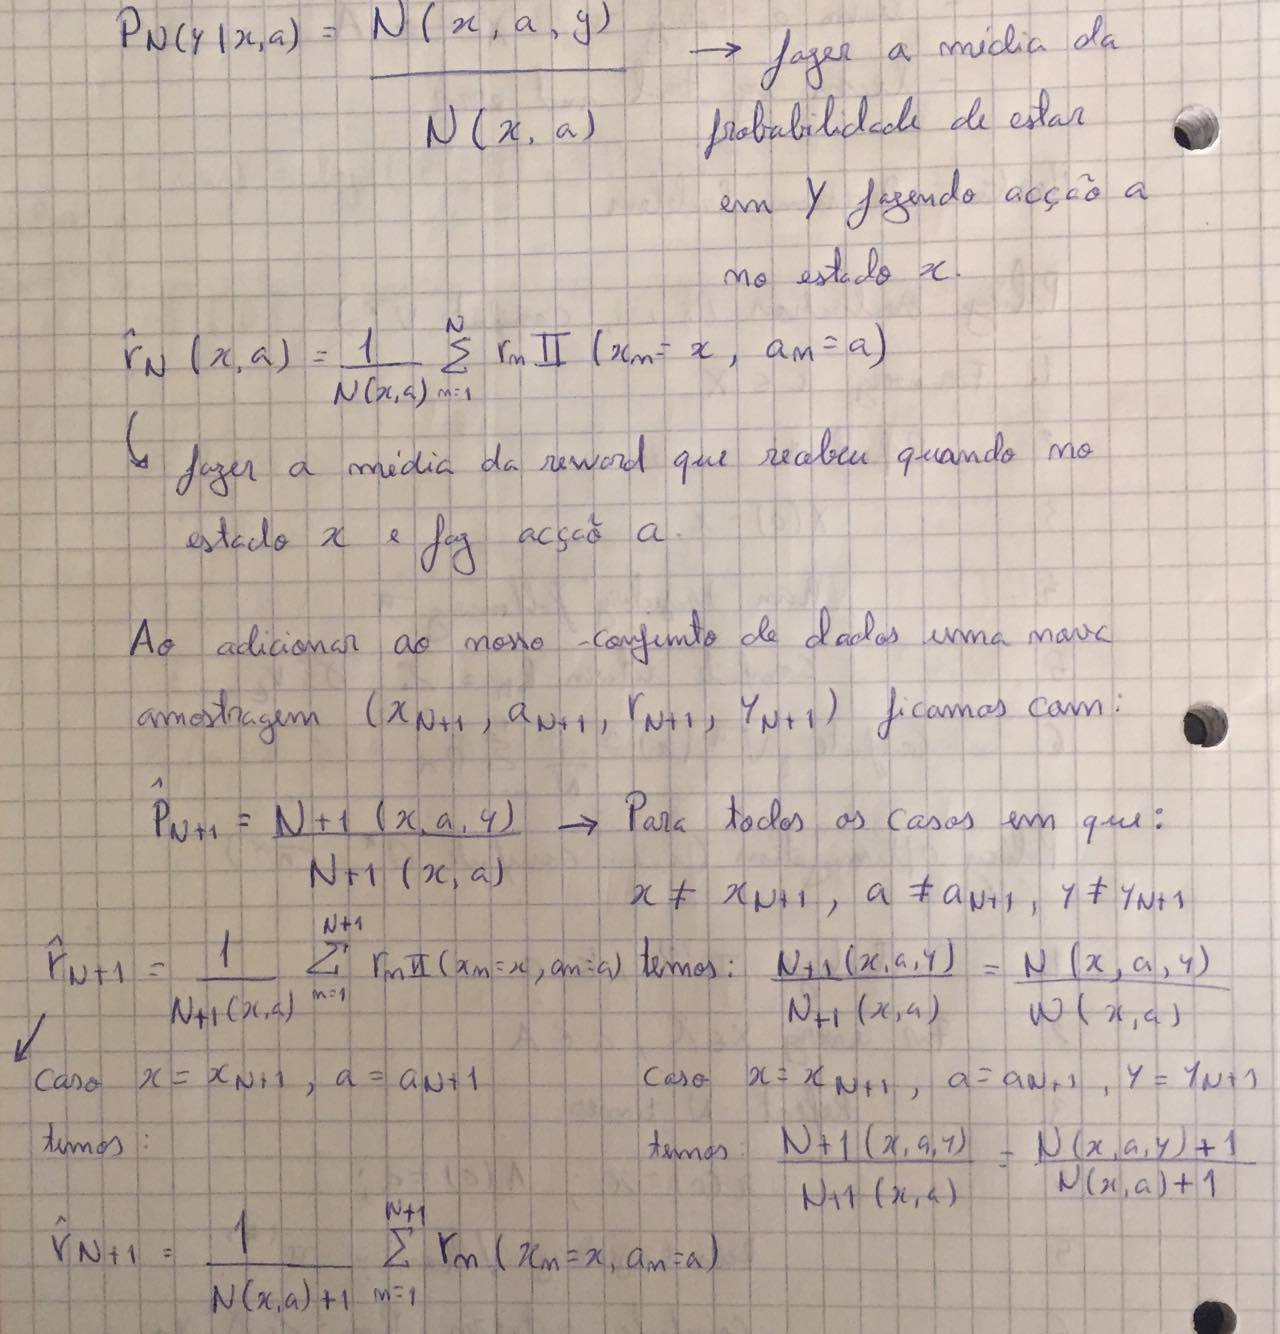 P_N(y|x,a) = N(x, a, y) / N(x, a) → fazer a média da
probabilidade de estar
em Y fazendo acção a
no estado x.
r̂_N (x,a) = 1/N(x,a) Σ_{n=1}^{N} r_n 𝕀 (x_n = x, a_n = a)
↳ fazer a média da reward que recebeu quando no
estado x e faz acção a.
Ao adicionar ao nosso conjunto de dados uma nova
amostragem (x_{N+1}, a_{N+1}, r_{N+1}, y_{N+1}) ficamos com:
P̂_{N+1} = N+1 (x, a, y) / N+1 (x, a) → Para todos os casos em que:
x ≠ x_{N+1}, a ≠ a_{N+1}, y ≠ y_{N+1}
temos: N+1(x,a,y) / N+1(x,a) = N(x,a,y) / N(x,a)
caso x = x_{N+1}, a = a_{N+1}, y = y_{N+1}
temos: N+1(x,a,y) / N+1(x,a) = N(x,a,y)+1 / N(x,a)+1
r̂_{N+1} = 1/N+1(x,a) Σ_{n=1}^{N+1} r_n 𝕀 (x_n = x, a_n = a)
caso x = x_{N+1}, a = a_{N+1}
temos:
r̂_{N+1} = 1/N(x,a)+1 Σ_{n=1}^{N+1} r_n (x_n = x, a_n = a)